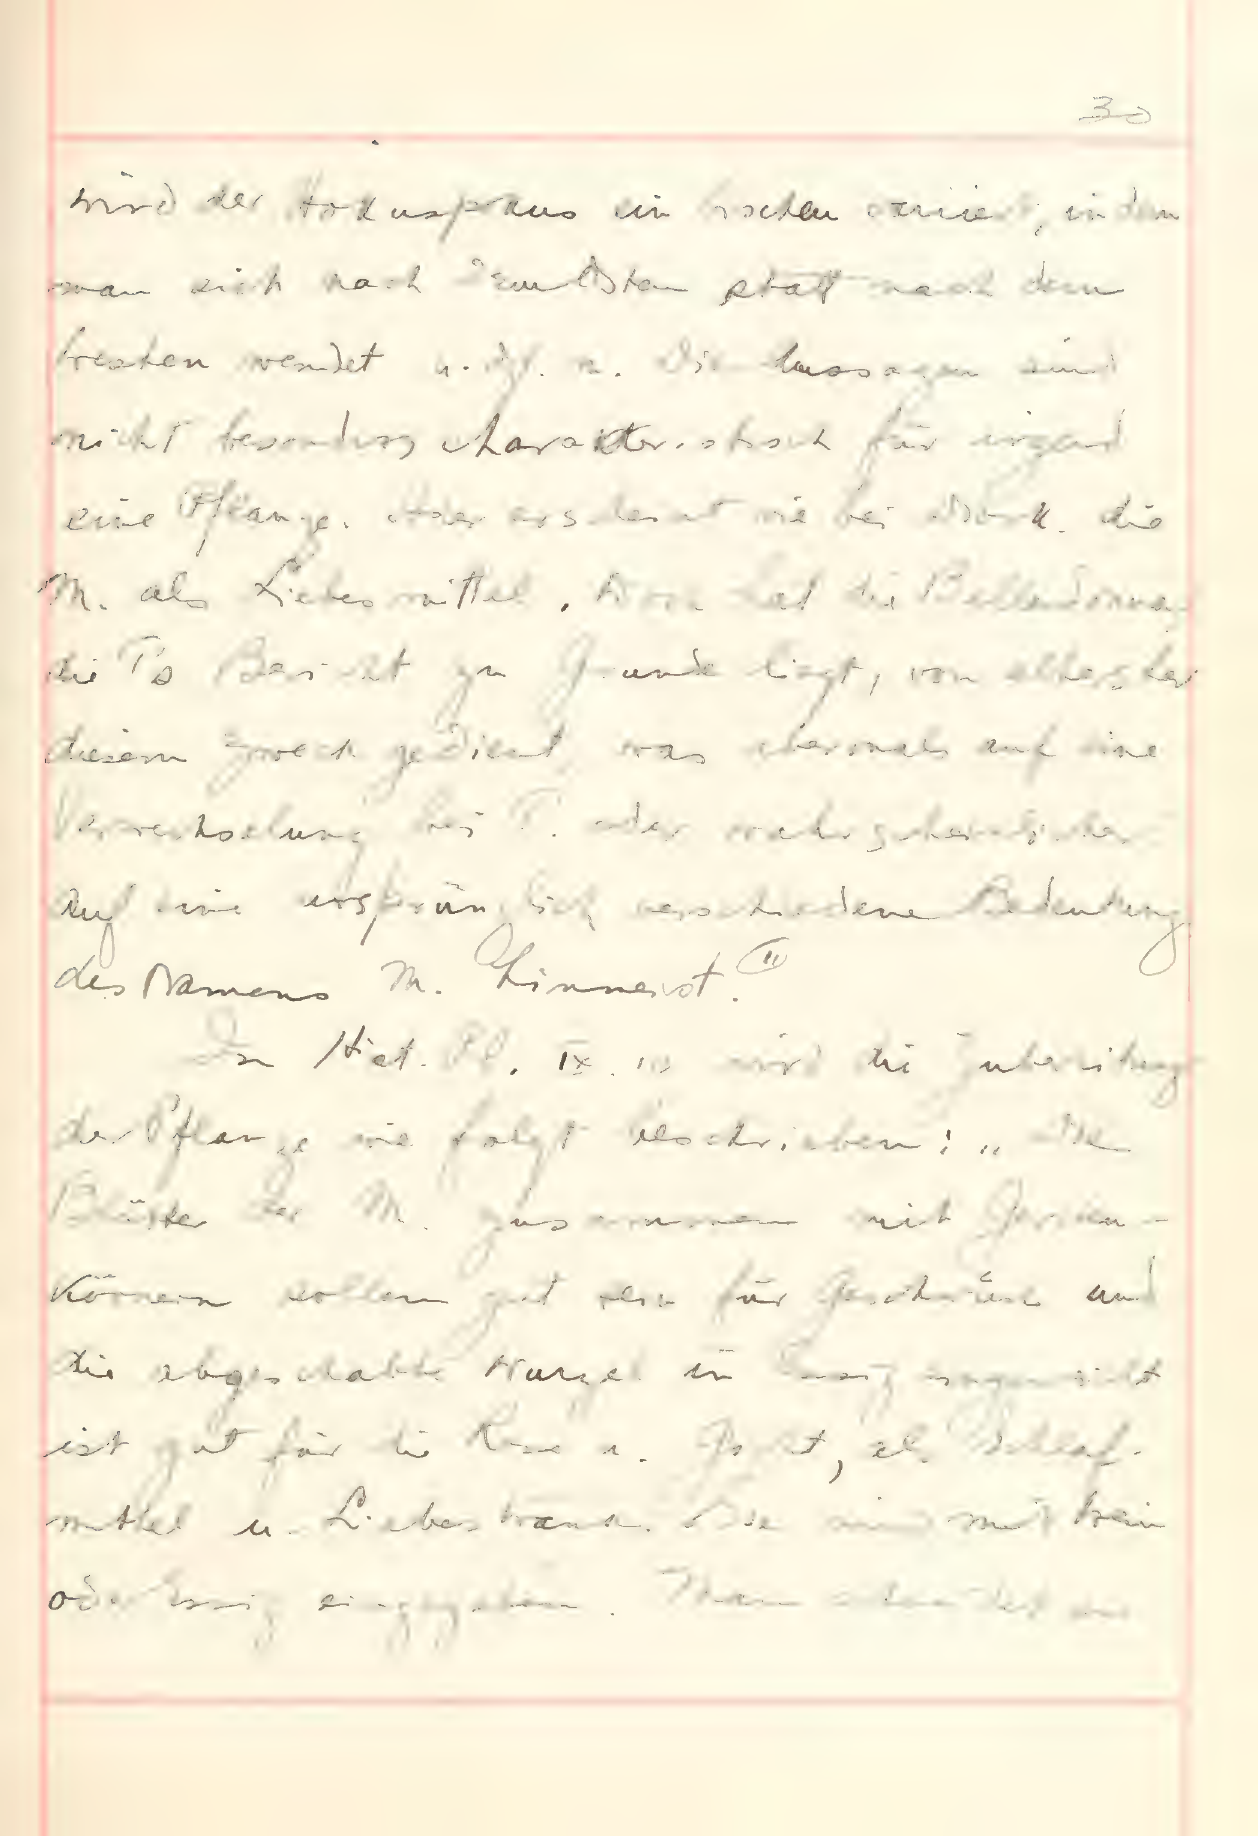 30
wird der Hokuspokus ein bischen variiert, indem
man sich nach dem Osten statt nach dem
Westen wendet u. dgl. m. Die Aussagen sind
nicht besonders charakteristisch für irgend
eine Pflanze. Hier erscheint wie bei Diosk. die
M. als Liebesmittel. Nun hat die Belladonna,
die T's Bericht zu Grunde liegt, von altersher
diesem Zweck gedient was abermals auf eine
Verwechselung bei T. oder wahrscheinlicher
auf eine ursprünglich verschiedene Bedeutung
des Namens M. hinweist.
In Hist. Pl. IX. wird die Zubereitung
der Pflanze wie folgt beschrieben: „Die
Blätter der M. zusammen mit Gersten-
körnern sollen gut sein für Geschwüre und
die abgeschabte Wurzel in Essig eingeweicht
ist gut für die Rose u. Gicht, als Schlaf-
mittel u. Liebestrank. Sie wird mit Wein
oder Essig eingegeben. Man schneidet